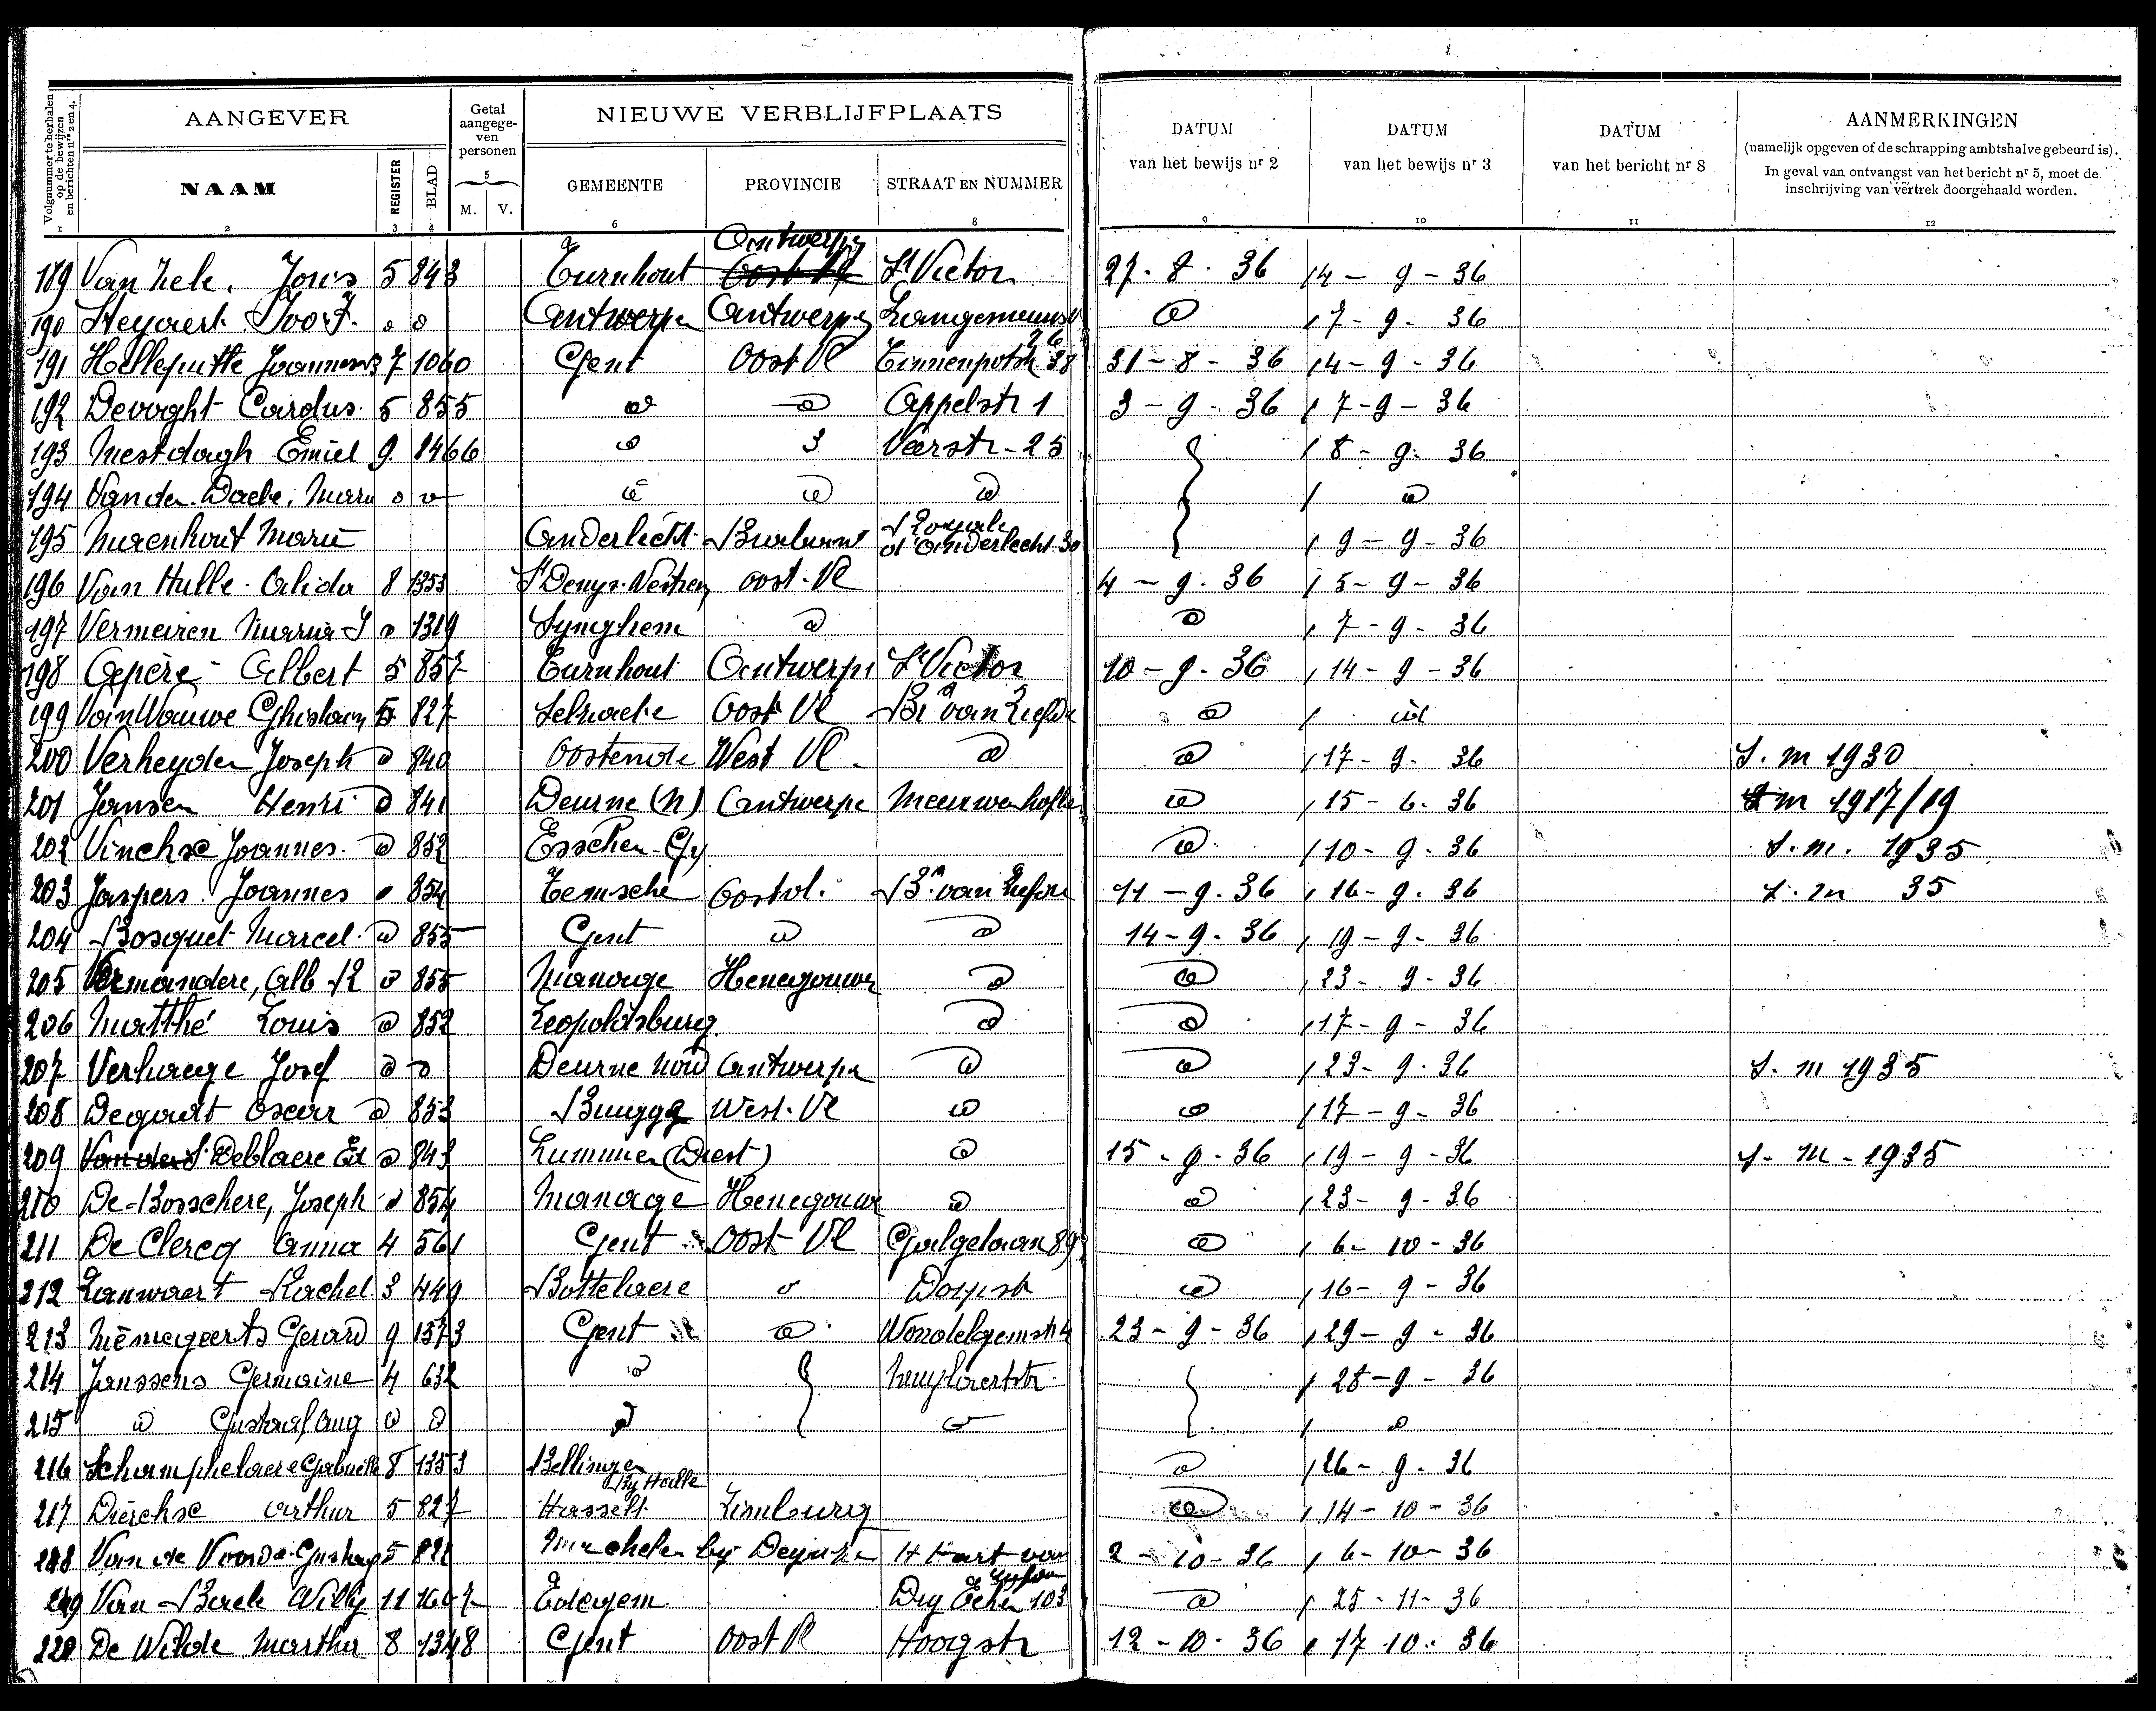 Volgnummer te herhalen op de bewijzen en berichten nrs 2 en 4.
AANGEVER
Getal aangegeven personen
NIEUWE VERBLIJFPLAATS
DATUM van het bewijs nr 2
DATUM van het bewijs nr 3
DATUM van het bericht nr 8
AANMERKINGEN
(namelijk opgeven of de schrapping ambtshalve gebeurd is).
In geval van ontvangst van het bericht nr 5, moet de inschrijving van vertrek doorgehaald worden.
NAAM REGISTER BLAD M. V. GEMEENTE PROVINCIE STRAAT EN NUMMER
1 2 3 4 5 6 8 9 10 11 12
189 Van Hele. Joris 5 843 Turnhout Antwerpen St Victor 27-8-36 14-9-36
190 Steyaert Ivo F. Antwerpen Antwerpen 17-9-36
191 Helleputte Joannes 7 1060 Gent Oost Vl Tinnenpotstr 38 31-8-36 14-9-36
192 Devoght Carolus 5 855 Appelstr 1 3-9-36 17-9-36
193 Mestdagh Emiel 9 1466 Veerstr-25 18-9-36
194 Van den Daele. Maria
195 Murenhout Maria Anderlecht Brabant Royale d'Anderlecht 30 19-9-36
196 Van Hulle Alida 8 1353 St Denys-Westrem Oost-Vl 4-9-36 15-9-36
197 Vermeiren Maria 1319 Synghem 17-9-36
198 Capère Albert 5 857 Turnhout Antwerpen St Victor 10-9-36 14-9-36
199 Van Wauwe Ghislain 5 827 Selzaete Oost Vl Brs van Liefde id
200 Verheyden Joseph 840 Oostende West Vl 17-9-36 S.m 1930
201 Jansen Henri 841 Deurne (N) Antwerpen 15-6-36 m 1917/19
202 Vinckx Joannes 852 Esschen 10-9-36 S.m. 1935
203 Jaspers Joannes 854 Temsche Oostvl. Brs van Liefde 11-9-36 16-9-36 S.m 35
204 Bosquet Marcel 855 Gent 14-9-36 19-9-36
205 Vermandere, Alb 855 Manage Henegouwen 23-9-36
206 Matthé Louis 852 Leopoldsburg 17-9-36
207 Verhaege Josef Deurne Noord Antwerpen 23-9-36 S.m 1935
208 Degradt Oscar 853 Brugge West-Vl 17-9-36
209 Deblaere Ed 843 Lummen (Diest) 15-9-36 19-9-36 S-m-1935
210 De Bosschere, Joseph 854 Manage Henegouwen 23-9-36
211 De Clercq Anna 4 561 Gent Oost Vl Galgelaan 89 6-10-36
212 Lauwaert Rachel 3 449 Bottelaere Dorpstr 16-9-36
213 Gerard 9 1573 Gent Wondelgemstr 4 23-9-36 29-9-36
214 Janssens Germaine 4 632 28-9-36
215 Gustaaf Aug
216 Schamphelaere Gabrielle 8 1353 Bellingen By Halle 26-9-36
217 Dierckx Arthur 5 827 Hasselt Limburg 14-10-36
218 Van de Voorde Gustaaf 5 Machelen by Deynze H Hart van 2-10-36 6-10-36
219 Van Baele Willy 11 1607 Edegem Dry Eiken 103 25-11-36
220 De Wilde Martha 8 1348 Gent Oost Vl Hoogstr 12-10-36 17-10-36